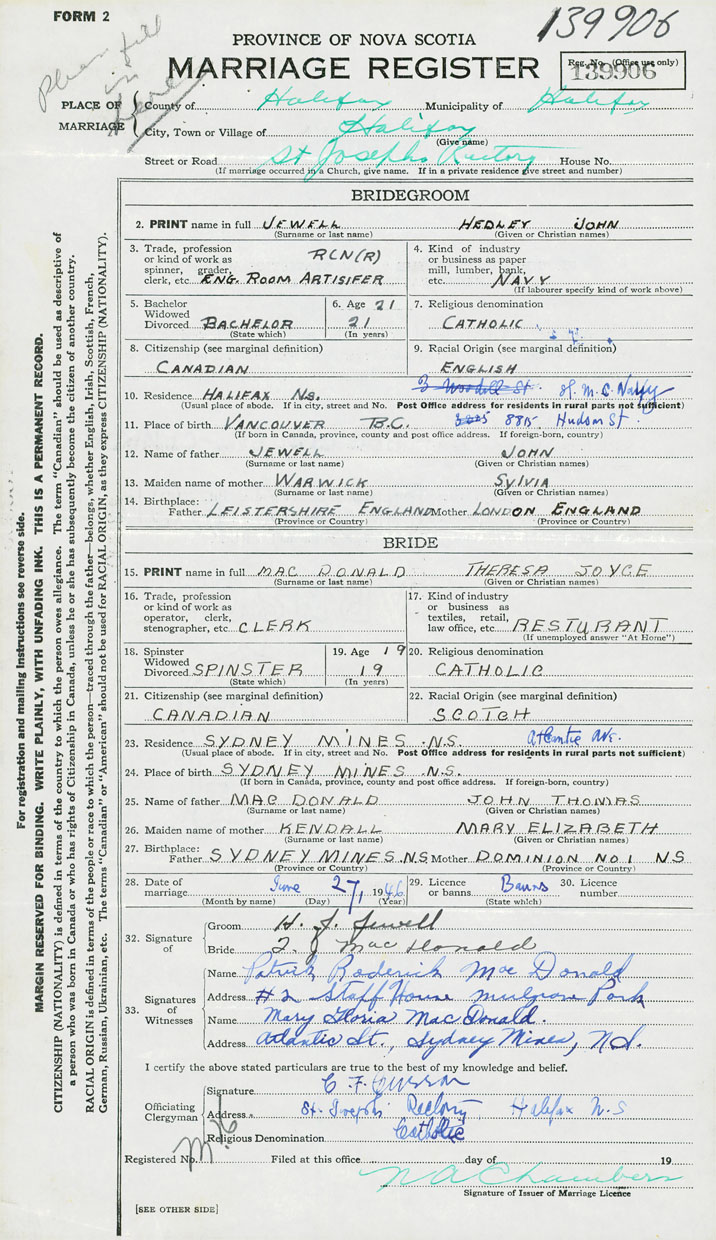 FORM 2
139906
Please fill in here
PROVINCE OF NOVA SCOTIA
MARRIAGE REGISTER
Reg. No. (Office use only)
139906
PLACE OF MARRIAGE
County of Halifax Municipality of Halifax
City, Town or Village of Halifax
(Give name)
Street or Road St Josephs Rectory House No.
(If marriage occurred in a Church, give name. If in a private residence give street and number)
BRIDEGROOM
2. PRINT name in full JEWELL HEDLEY JOHN
(Surname or last name) (Given or Christian names)
3. Trade, profession or kind of work as spinner, grader, clerk, etc. RCN(R) ENG. ROOM ARTISIFER
4. Kind of industry or business as paper mill, lumber, bank, etc. NAVY
(If labourer specify kind of work above)
5. Bachelor Widowed Divorced BACHELOR
(State which)
6. Age 21
21
(In years)
7. Religious denomination
CATHOLIC
8. Citizenship (see marginal definition)
CANADIAN
9. Racial Origin (see marginal definition)
ENGLISH
10. Residence HALIFAX NS. H.M.C. Navy
(Usual place of abode. If in city, street and No. Post Office address for residents in rural parts not sufficient)
11. Place of birth VANCOUVER B.C. Hudson St.
(If born in Canada, province, county and post office address. If foreign-born, country)
12. Name of father JEWELL JOHN
(Surname or last name) (Given or Christian names)
13. Maiden name of mother WARWICK SYLVIA
(Surname or last name) (Given or Christian names)
14. Birthplace:
Father LEISTERSHIRE ENGLAND Mother LONDON ENGLAND
(Province or Country) (Province or Country)
BRIDE
15. PRINT name in full MAC DONALD THERESA JOYCE
(Surname or last name) (Given or Christian names)
16. Trade, profession or kind of work as operator, clerk, stenographer, etc. CLERK
17. Kind of industry or business as textiles, retail, law office, etc. RESTURANT
(If unemployed answer "At Home")
18. Spinster Widowed Divorced SPINSTER
(State which)
19. Age 19
19
(In years)
20. Religious denomination
CATHOLIC
21. Citizenship (see marginal definition)
CANADIAN
22. Racial Origin (see marginal definition)
SCOTCH
23. Residence SYDNEY MINES .N.S. Atlantic Av.
(Usual place of abode. If in city, street and No. Post Office address for residents in rural parts not sufficient)
24. Place of birth SYDNEY MINES .N.S.
(If born in Canada, province, county and post office address. If foreign-born, country)
25. Name of father MAC DONALD JOHN THOMAS
(Surname or last name) (Given or Christian names)
26. Maiden name of mother KENDALL MARY ELIZABETH
(Surname or last name) (Given or Christian names)
27. Birthplace:
Father SYDNEY MINES .N.S Mother DOMINION NO 1 NS
(Province or Country) (Province or Country)
28. Date of marriage June 27, 1946
(Month by name) (Day) (Year)
29. Licence or banns Banns
(State which)
30. Licence number
32. Signature of
Groom H. J. Jewell
Bride T. J MacDonald
33. Signatures of Witnesses
Name Patrick Roderick MacDonald
Address #2 Staff House Mulgrave Park
Name Mary Gloria MacDonald.
Address Atlantic St., Sydney Mines, N.S.
I certify the above stated particulars are true to the best of my knowledge and belief.
Officiating Clergyman
Signature C. F.
Address St. Joseph's Rectory Halifax N.S
Religious Denomination Catholic
Registered No. Filed at this office day of 19
N A Chambers
Signature of Issuer of Marriage Licence
[SEE OTHER SIDE]
For registration and mailing instructions see reverse side.
MARGIN RESERVED FOR BINDING. WRITE PLAINLY, WITH UNFADING INK. THIS IS A PERMANENT RECORD.
CITIZENSHIP (NATIONALITY) is defined in terms of the country to which the person owes allegiance. The term "Canadian" should be used as descriptive of
a person who was born in Canada or who has rights of Citizenship in Canada, unless he or she has subsequently become the citizen of another country.
RACIAL ORIGIN is defined in terms of the people or race to which the person—traced through the father—belongs, whether English, Irish, Scottish, French,
German, Russian, Ukrainian, etc. The terms "Canadian" or "American" should not be used for RACIAL ORIGIN, as they express CITIZENSHIP (NATIONALITY).